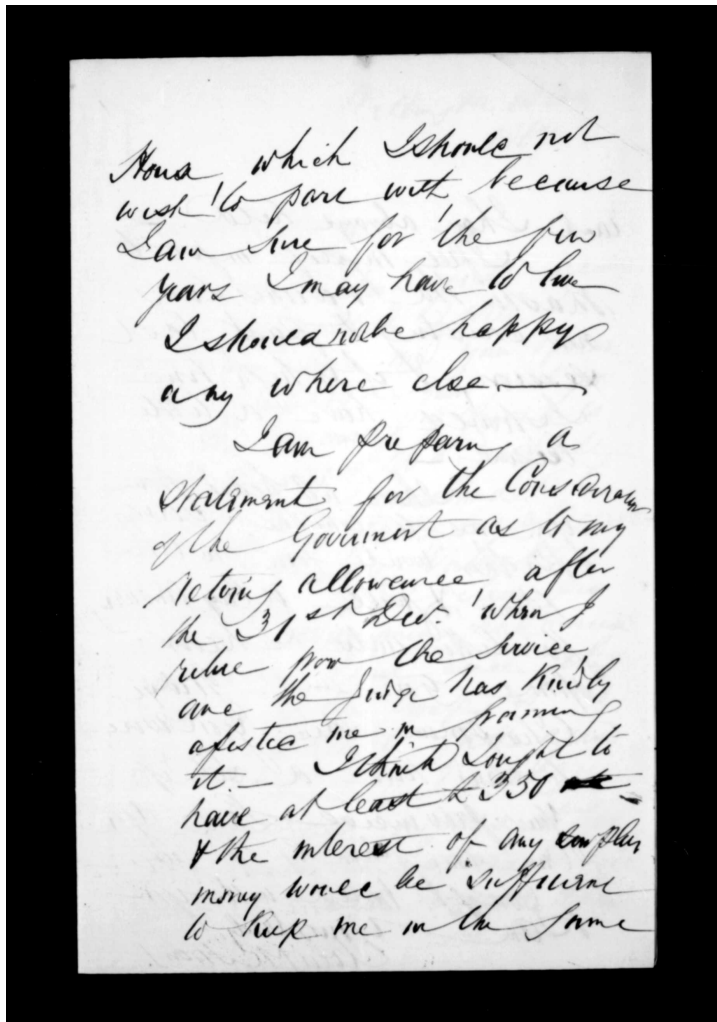 House, which I should not
wish to part with, because
I am sure for the few
years I may have to live
I should not be happy
any where else. —
I am preparing a
statement for the Consideration
of the Government as to my
retiring allowance, after
the 31st Decr. when I
retire from the Service,
and the Judge has Kindly
assisted me in framing
it. — I think I ought to
have at least £350
& the interest of any surplus
money would be sufficient
to keep me in the same